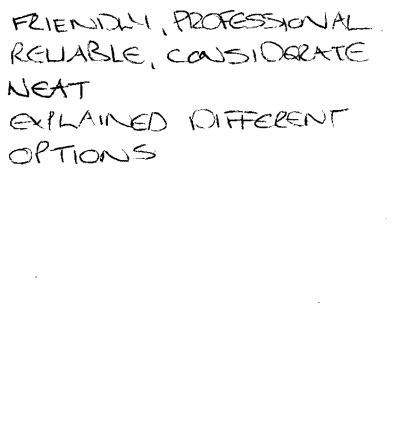 FRIENDLY, PROFESSIONAL
RELIABLE, CONSIDERATE
NEAT
EXPLAINED DIFFERENT
OPTIONS